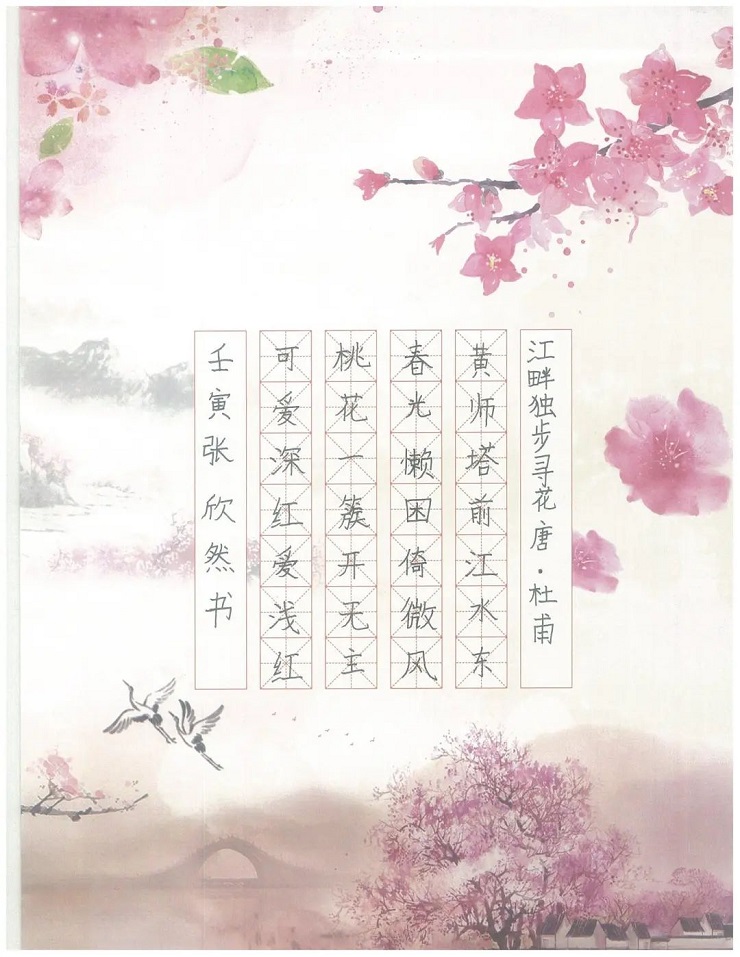 江畔独步寻花唐·杜甫
黄师塔前江水东
春光懒困倚微风
桃花一簇开无主
可爱深红爱浅红
壬寅张欣然书